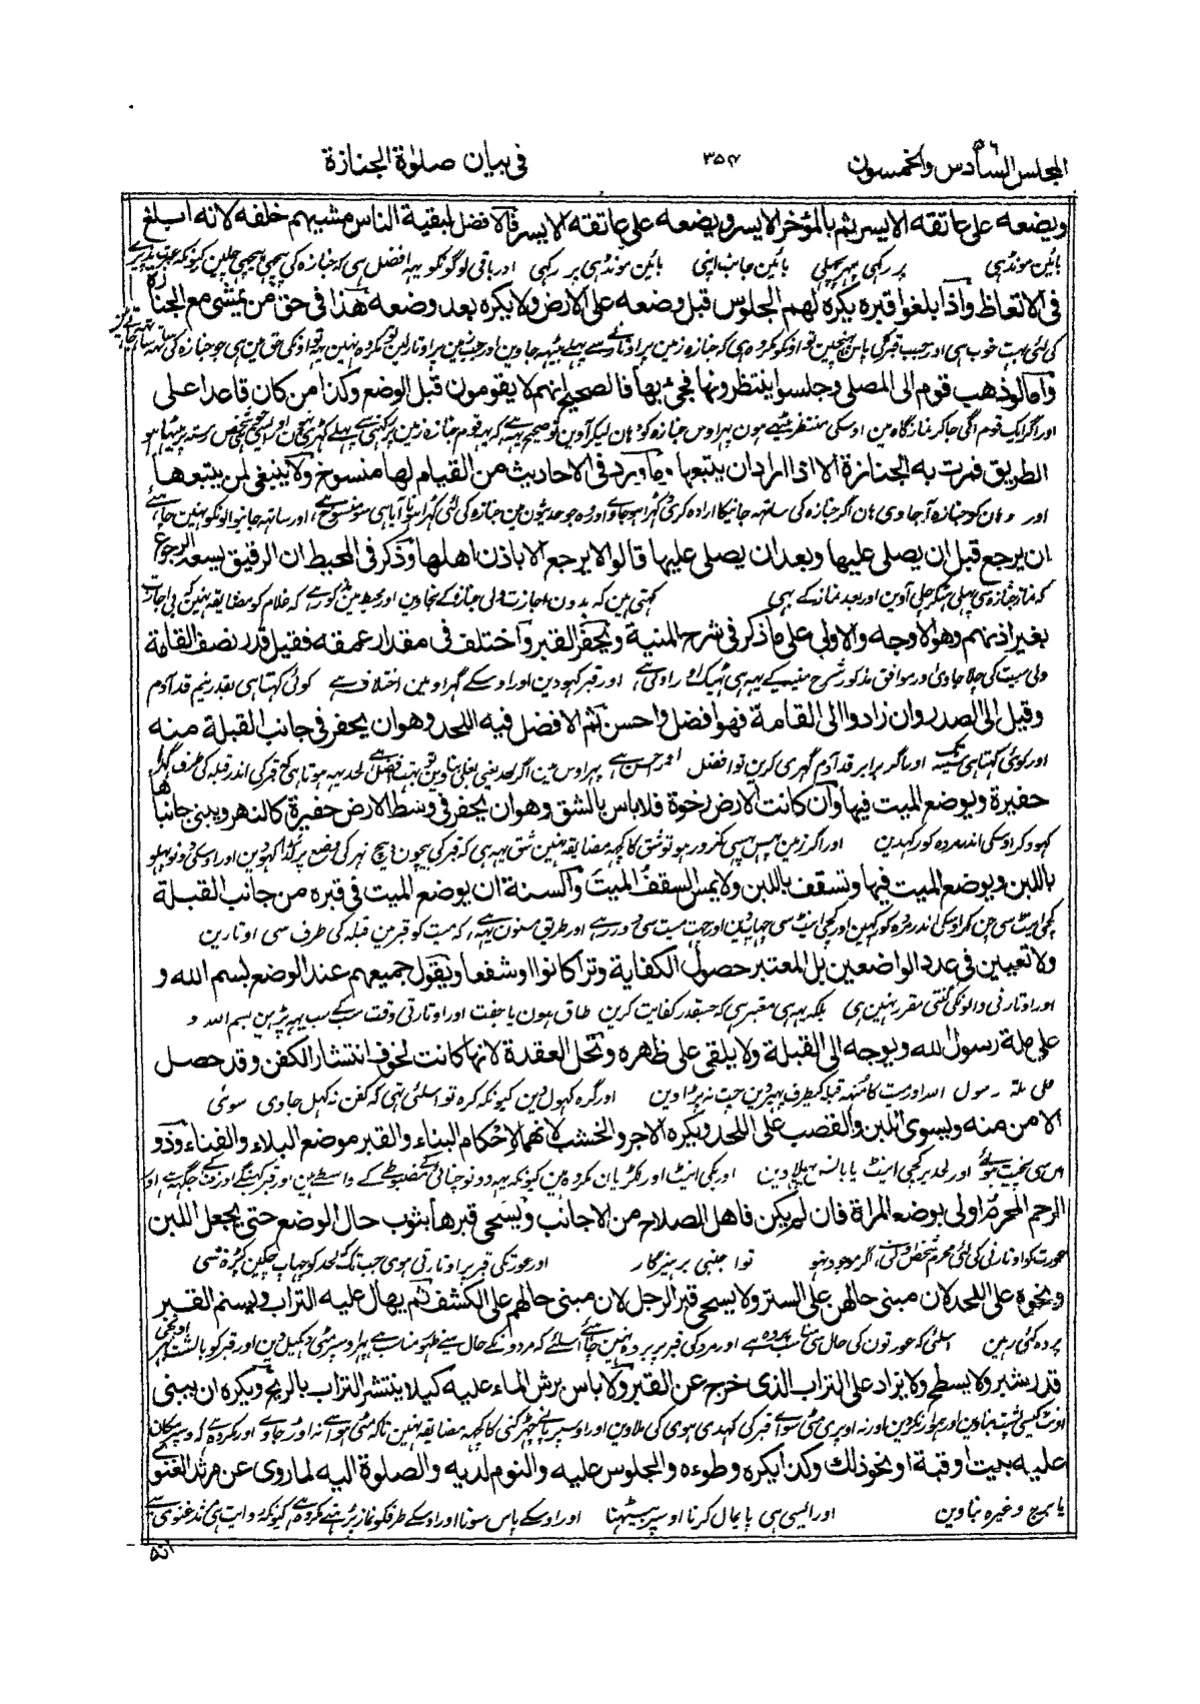 المجلس السادس والخمسون ۳۵۴ فى بيان صلوٰة الجنازة
ويضعه على عاتقه الايسر ثم بالمؤخر الايسر ويضعه على عاتقه الايسر فالافضل لبقية الناس مشيهم خلفه لانه ابلغ
بائین مونڈہی پر رکہی پہر پچہلی بائین جانب اپنی بائین مونڈہی پر رکہی اور باقی لوگونکو یہہ افضل ہی کہ جنازہ کی پیچہی پیچہی چلین کیونکہ
فى الاتعاظ واذا بلغوا قبره يكره لهم الجلوس قبل وضعه على الارض ولا يكره بعد وضعه هذا فى حق من يمشى مع الجنازة
کی لئی بہت خوب ہی اور جب قبر کی پاس پہنچین تو اونکو مکروہ ہی کہ جنازہ زمین پر اوتارنے سے پہلے بیٹہہ جاوین اور جب زمین پر اوتارلین تو مکروہ نہین یہہ تو اونکی حق مین ہی جو جنازہ کی ساتہہ
واما لو ذهب قوم الى المصلى وجلسوا ينتظرونها فجئ بها فالصحيح انهم لا يقومون قبل الوضع وكذا من كان قاعدا على
اور اگر ایک قوم اگی جاکر نمازگاہ مین اوسکی منتظر بیٹہے ہون پہر اوس جنازہ کو وہان لیکر آوین تو صحیح یہہ ہے کہ یہہ قوم جنازہ زمین پر رکہنی سے پہلے کہڑی نہون اور ایسی ہی جو شخص رستہ پر بیٹہا ہو
الطريق فمرت به الجنازة الا اذا اراد ان يتبعها وما ورد فى الاحاديث من القيام لها منسوخ ولا ينبغى لمن يتبعها
اور وہان کو جنازہ آجاوی ہان اگر جنازہ کی ساتہہ جانیکا ارادہ کری تو کہڑا ہو جاوے اور وہ جو حدیثون مین جنازہ کی لئی کہڑا ہونا آیا ہی سو منسوخ ہے اور ساتہہ جانیوالونکو نہین چاہئے
ان يرجع قبل ان يصلى عليها وبعد ان يصلى عليها قالوا لا يرجع الا باذن اهلها وذكر فى المحيط ان الرفيق يسعه الرجوع
کہ نماز جنازہ سی پہلی پہر کر چلی آوین اور بعد نماز کے بہی کہتی ہین کہ بدون اجازت ولی جنازہ کے نجاوین اور محیط مین مذکور ہے کہ غلام کو مضایقہ نہین کہ بی اجازت
بغير اذنهم وهو الاوجه والاولى على ما ذكر فى شرح المنية ويحفر القبر واختلف فى مقدار عمقه فقيل قدر نصف القامة
ولی میت کی چلا جاوی اور موافق مذکور شرح منیہ کے یہہ ہی ٹہیک اور اولی ہے اور قبر کہودین اور اوسکے گہراو مین اختلاف ہے کوئی کہتا ہی بقدر نیم قد آدم
وقيل الى الصدر وان زادوا الى القامة فهو افضل واحسن ثم الافضل فيه اللحد وهو ان يحفر فى جانب القبلة منه
اور کوئی کہتا ہی سینہ تک اور اگر برابر قد آدم گہری کرین تو افضل اور احسن ہے پہر اوس مین اگر لحد یعنی بغلی بناوین تو بہت افضل ہے لحد یہہ ہوتا ہی کہ قبر کی اندر قبلہ کی طرف گڑہا
حفيرة ويوضع الميت فيها وان كانت الارض رخوة فلا باس بالشق وهو ان يحفر فى وسط الارض حفيرة كالنهر ويبنى جانباها
کہود کر اوسکی اندر مردہ کو رکہدین اور اگر زمین پہس پہسی کمزور ہو تو شق کا کچہہ مضایقہ نہین شق یہہ ہی کہ قبر کی بیچون بیچ نہر کی وضع پر گڑہا کہودین اور اوسکی دونو پہلو
باللبن ويوضع الميت فيها وتسقف باللبن ولا يمس السقف الميت والسنة ان يوضع الميت فى قبره من جانب القبلة
کچی اینٹ سی چن کر اوسکی اندر مردہ کو رکہین اور کچی اینٹ سی چہاپدین اور چہت میت سی دور رہے اور طریق مسنون یہہ ہے کہ میت کو قبر مین قبلہ کی طرف سی اوتارین
ولا تعيين فى عدد الواضعين بل المعتبر حصول الكفاية وترا كانوا او شفعا ويقول جميعهم عند الوضع بسم الله و
اور اوتارنی والونکی گنتی مقرر نہین ہی بلکہ یہہ ہی معتبر ہی کہ جسقدر کفایت کرین طاق ہون یا جفت اور اوتارتی وقت سب کے سب یہہ پڑہین بسم اللہ و
على ملة رسول الله ويوجه الى القبلة ولا يلقى على ظهره وتحل العقدة لانها كانت لخوف انتشار الكفن وقد حصل
علی ملۃ رسول اللہ اور میت کا مُنہہ قبلہ کیطرف پہیر دین چت نہ پڑا دین اور گرہ کہول دین کیونکہ گرہ تو اسلئی تہی کہ کفن نہ کہل جاوی سوئی
الامن منه ويسوى اللبن والقصب على اللحد ويكره الاجر والخشب لانهما لاحكام البناء والقبر موضع البلاء والفناء وذو
اور لحد پر کچی اینٹ یا بانس پہیلا دین اور پکی اینٹ اور لکڑیان مکروہ ہین کیونکہ یہہ دونو چنائی کے مضبوطے کے واسطے ہین اور قبر
الرحم المحرم اولى بوضع المراة فان لم يكن فاهل الصلاح من الاجانب ويسجى قبرها بثوب حال الوضع حتى يجعل اللبن
عورت کو اوتارنی کی لئی محرم شخص اولی ہے اگر موجود نہو تو اجنبی پرہیزگار اور عورتکی قبر پر اوتارتی ہوی جب تک لحد کو چہاپ چکین کپڑہ سی
ونحوه على اللحد لان مبنى حالهن على الستر ولا يسجى قبر الرجل لان مبنى حالهم على الكشف ثم يهال عليه التراب ويسنم القبر
پردہ کئی رہین اسلئی کہ عورتون کی حال سی مناسب پردہ ہے اور مرد کی قبر پر پردہ نہین چاہئے اسلئے کہ مردونکے حال سے ظہور مناسب ہے پہر اوسپر مٹی دہکیل دین اور قبر کو بالشت
قدر شبر ولا يسطح ولا يزاد على التراب الذى خرج عن القبر ولا باس برش الماء عليه كيلا ينتشر التراب بالريح ويكره ان يبنى
اونٹ کیسی پشت بناوین اور چورا نکرین اور نہ اوپری مٹی سوائے قبر کی کہدی ہوی کی ملاوین اور اوسپر پانی چہڑکنی کا کچہہ مضایقہ نہین تاکہ مٹی ہوا سے نہ اوڑ جاوے اور مکروہ ہے کہ اوسپر مکان
عليه بيت او قبة او نحو ذلك وكذا يكره وطوءه والجلوس عليه والنوم لديه والصلوة اليه لما روى عن مرثد الغنوى
یا برج وغیرہ بناوین اور ایسی ہی پایمال کرنا اوسپر بیٹہنا اور اوسکے پاس سونا اور اوسکے طرفکو نماز پڑہنی مکروہ ہے کیونکہ روایت ہی مرثد غنوی سے
انه